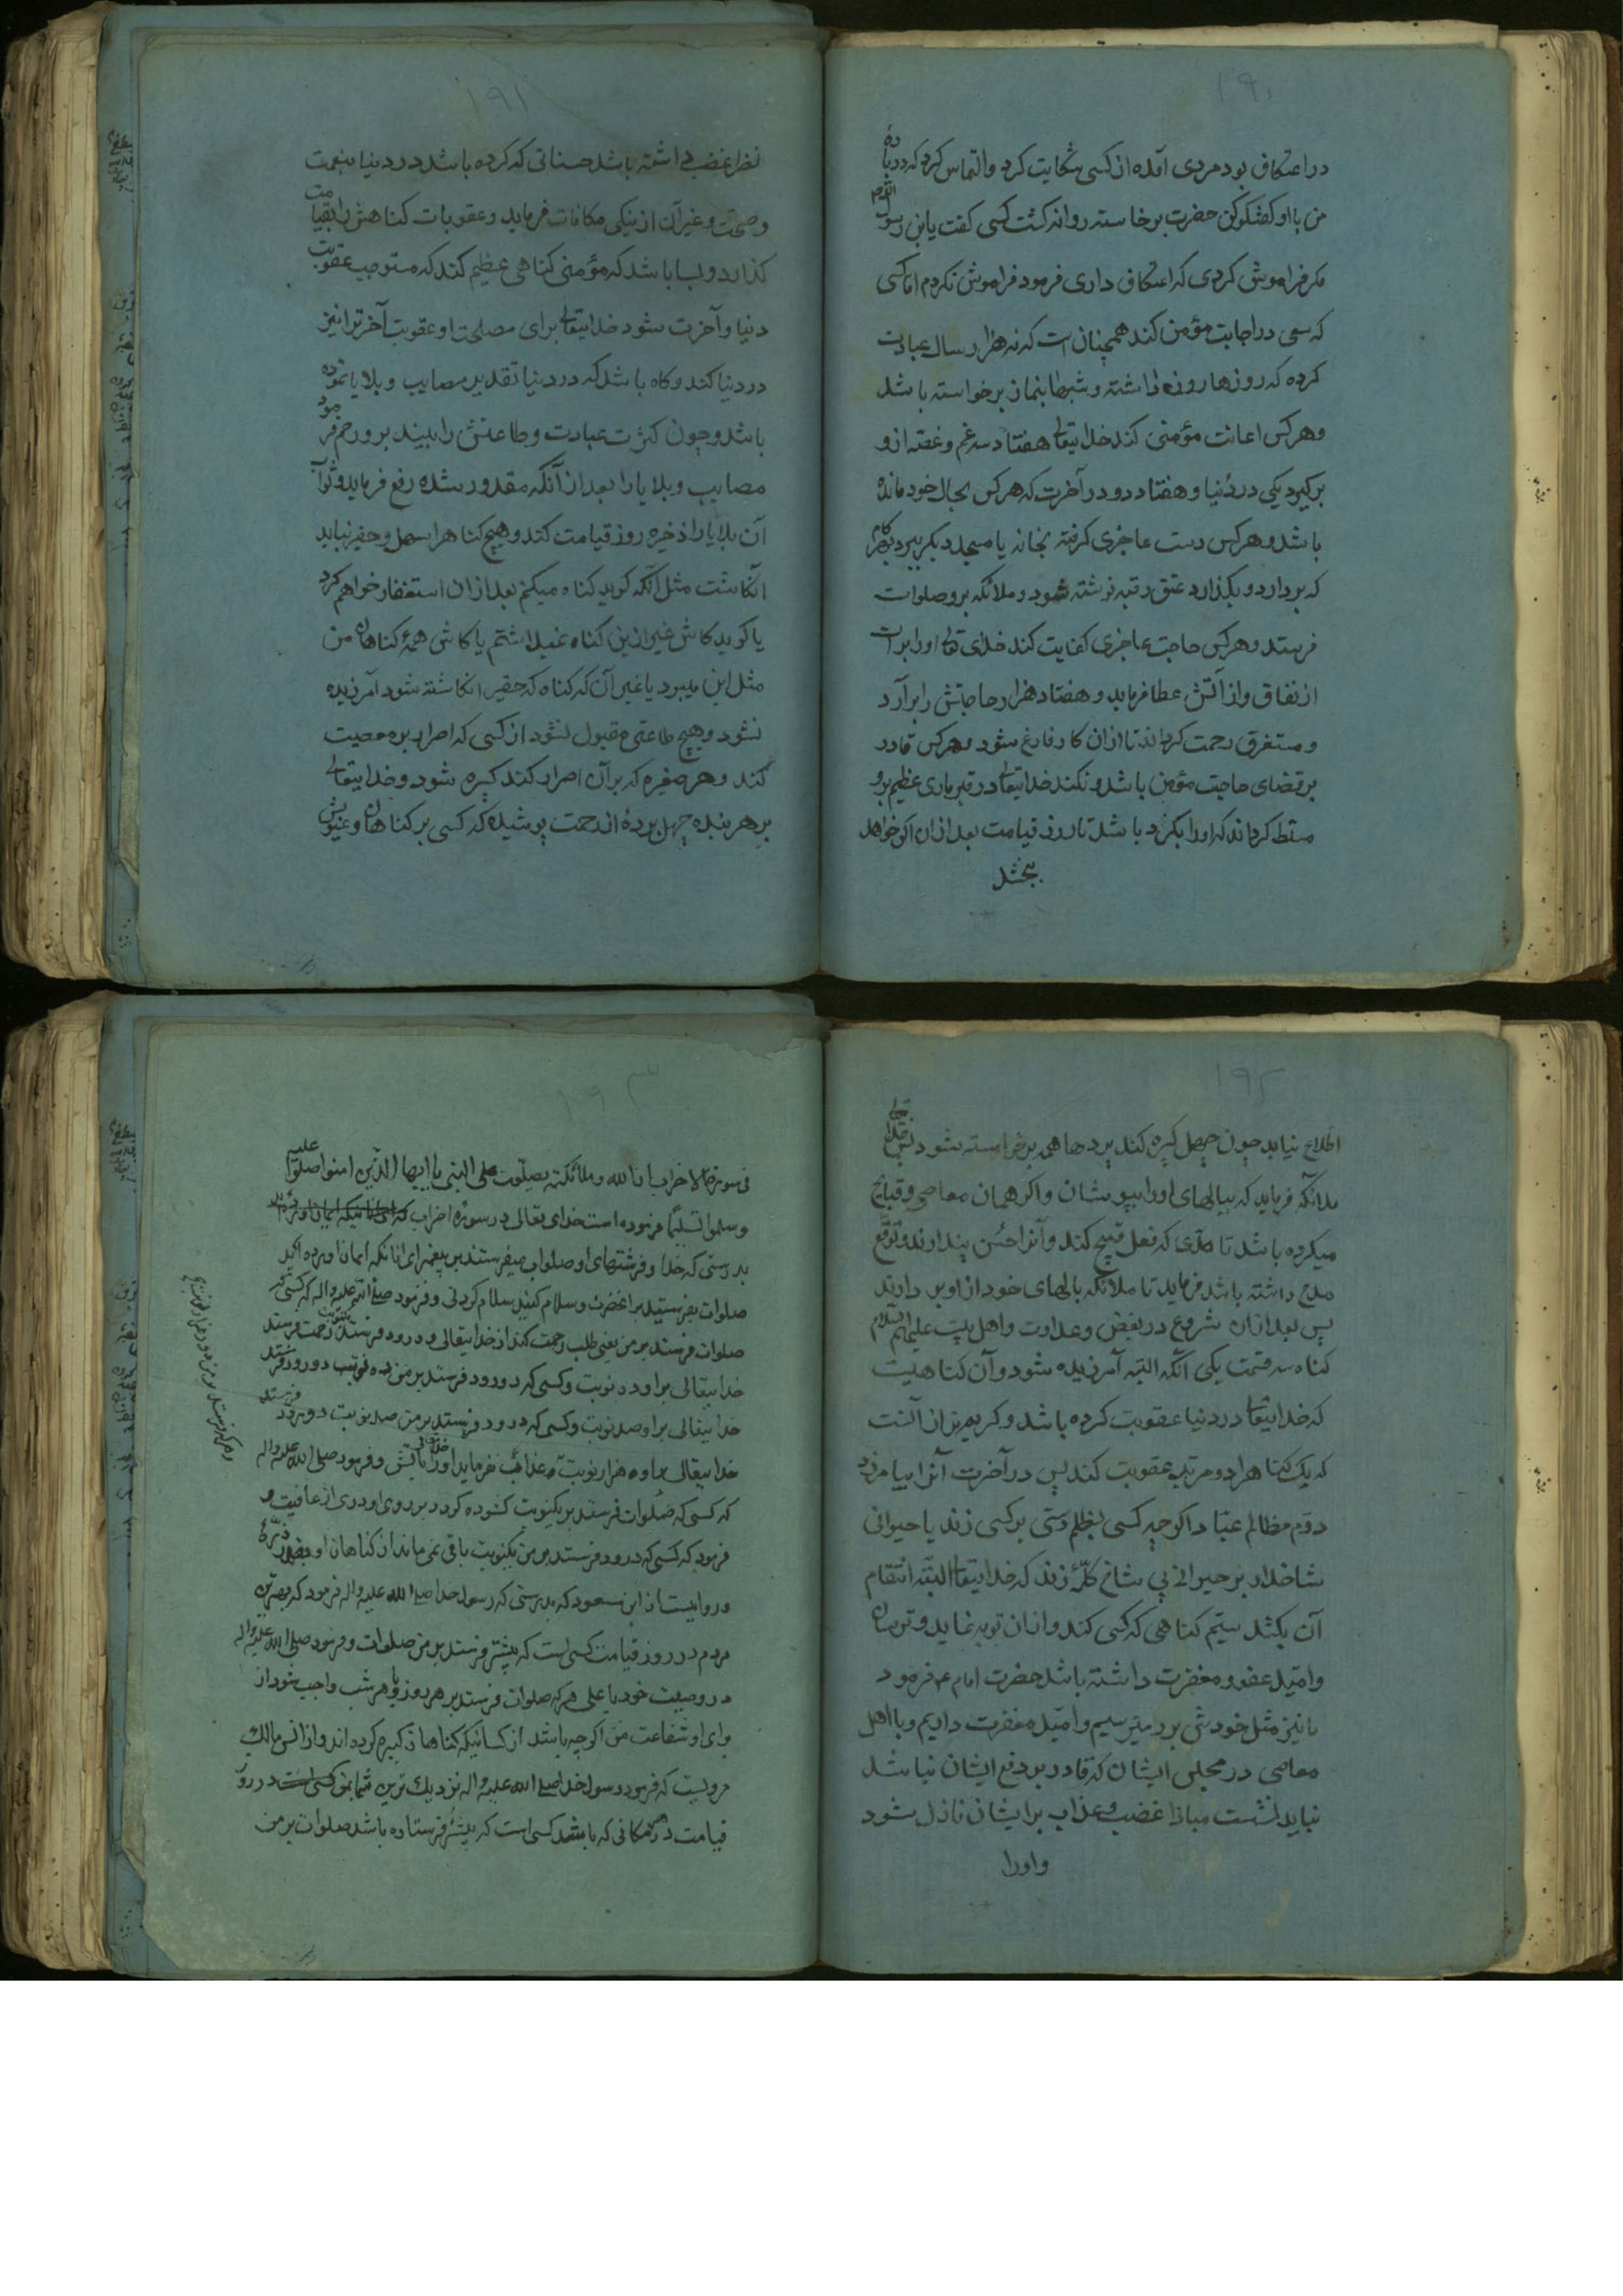 ۱۹۰
در اعتکاف بود مردی آمده از کسی شکایت کرد و التماس کرد که در باره
من با او گفتگو کن حضرت برخاسته روانه گشت کسی گفت یابن رسول الله
مگر فراموش کردی که اعتکاف داری فرمود فراموش نکردم اما کسی
که سعی در اجابت مؤمن کند همچنان است که نه هزار سال عبادت
کرده که روزها روزه داشته و شبها بنماز برخواسته باشد
و هر کس اعانت مؤمنی کند خدایتعالی هفتاد سه غم و غصه از و
برگیرد یکی در دنیا و هفتاد دو در آخرت که هر کس بحال خود مانده
باشد و هر کس دست عاجزی گرفته بخانه یا مسجد دیگر ببرد بهر گام
که بردارد و بگذارد عتق رقبه نوشته شود و ملائکه برو صلوات
فرستند و هر کس حاجت عاجزی کفایت کند خدای تعالی او را برات
از نفاق و از آتش عطا فرماید و هفتاد هزار حاجتش را برآرد
و مستغرق رحمت گرداند تا از ان کار فارغ شود و هر کس قادر
بر قضای حاجت مؤمن باشد و نکند خدایتعالی در قبر ماری عظیم برو
مسلط گرداند که او را بگزد باشد تا روز قیامت بعد از ان اگر خواهد
ببخشد
۱۹۱
نظر غضب داشته باشد حسناتی که کرده باشد در دنیا بنعمت
وصحت و غیر آن از نیکی مکافات فرماید و عقوبات گناهش را بقیامت
گذارد و بسا باشد که مؤمنی گناهی عظیم کند که مستوجب عقوبت
دنیا و آخرت شود خدایتعالی برای مصلحت او عقوبت آخرترا نیز
در دنیا کند و گاه باشد که در دنیا تقدیر مصایب و بلایا نموده
باشد و چون کثرت عبادت و طاعتش را ببیند برو رحم فرموده
مصایب و بلایا را بعد از آنکه مقدور شده رفع فرماید و ثواب
آن بلایا را ذخیره روز قیامت کند و هیچ گناه را سهل و حقیر نباید
انگاشت مثل آنکه گوید گناه میکنم بعد از ان استغفار خواهم کرد
یا گوید کاش غیر ازین گناه نمیداشتم یا کاش همهٔ گناهان من
مثل این میبود یا غیر آن که گناه که حقیر انگاشته شود آمرزیده
نشود و هیچ طاعتی مقبول نشود از کسی که اصرار بر معصیت
کند و هر صغیره که بر آن اصرار کند کبیره شود و خدایتعالی
بر هر بنده چهل پردهٔ از رحمت پوشیده که کسی بر گناهان و عیوبش
۱۹۲
اطلاع نیابد چون چهل کبیره کند پردها همه برخواسته شود پس حقتعالی
ملائکه فرماید که ببالهای او را بپوشان و اگر همان معاصی و قبایح
میکرده باشد تا حدی که فعل قبیح کند و آنرا حسن پندارند و توقع
مدح داشته باشد فرماید تا ملائکه بالهای خود از او بر دارند
پس بعد از ان شروع در بغض و عداوت و اهل بیت علیهم السلام
گناه سه قسمت یکی آنکه البته آمرزیده شود و آن گناهیست
که خدایتعالی در دنیا عقوبت کرده باشد و کریمتر از آنست
که یک گناه را دو مرتبه عقوبت کند پس در آخرت آنرا بیامرزد
دوم مظالم عباد اگر چه کسی بظلم دستی بر کسی زند یا حیوانی
شاخدار بر حیوانی بی شاخ کلّهٔ زند که خدایتعالی البته انتقام
آن بکشد سیّم گناهی که کسی کند و از ان توبه نماید و ترسان
و امید عفو و مغفرت داشته باشد حضرت امام ع فرمود
ما نیز مثل خودش برو میترسیم و امید مغفرت داریم و با اهل
معاصی در مجلس ایشان که قادر بر دفع ایشان نباشد
نباید نشست مبادا غضب و عذاب بر ایشان نازل شود
و او را
۱۹۳
فی سورة الاحزاب ان الله و ملائکته یصلّون علی النبی یا ایها الذین امنوا صلّوا علیه
وسلموا تسلیما فرموده است خدای تعالی در سوره احزاب که
بدرستی که خدا و فرشتهای او صلوات میفرستند بر پیغمبر ای انانکه ایمان اورده اید
صلوات بفرستید بر انحضرت و سلام کنید سلام کردنی و فرمود صلی الله علیه واله که کسی که
صلوات فرستد بر من یعنی طلب رحمت کند از خدایتعالی و درود فرستد یکنوبت رحمت فرستد
خدایتعالی بر او ده نوبت و کسی که درود فرستد بر من ده نوبت درود فرستد
خدایتعالی بر او صد نوبت و کسی که درود فرستد بر من صد نوبت درود فرستد
خدایتعالی بر او هزار نوبت عذاب نفرماید او را خدایتعالی باتش و فرمود صلی الله علیه واله
که کسی که صلوات فرستد بر یکنوبت گشوده گردد بر روی او دری از عافیت و
فرمود که کسی که درود فرستد بر من یکنوبت باقی نمی ماند از گناهان او ذرّهٔ
و روایست از ابن مسعود که بدرستی که رسول خدا صلی الله علیه واله فرمود که بهترین
مردم در روز قیامت کسی است که بیشتر فرستد بر من صلوات و فرمود صلی الله علیه واله
در وصیت خود یا علی هر که صلوات فرستد بر هر روز یا هر شب واجب شود از
برای او شفاعت من اگر چه باشد از کسانیکه گناهان کبیره کرده اند و از انس مالک
مرویست که فرمود رسول خدا صلی الله علیه واله نزدیک ترین شما بمن در روز
قیامت در هر مکانی که باشد کسی است که بیشتر فرستاده باشد صلوات بر من